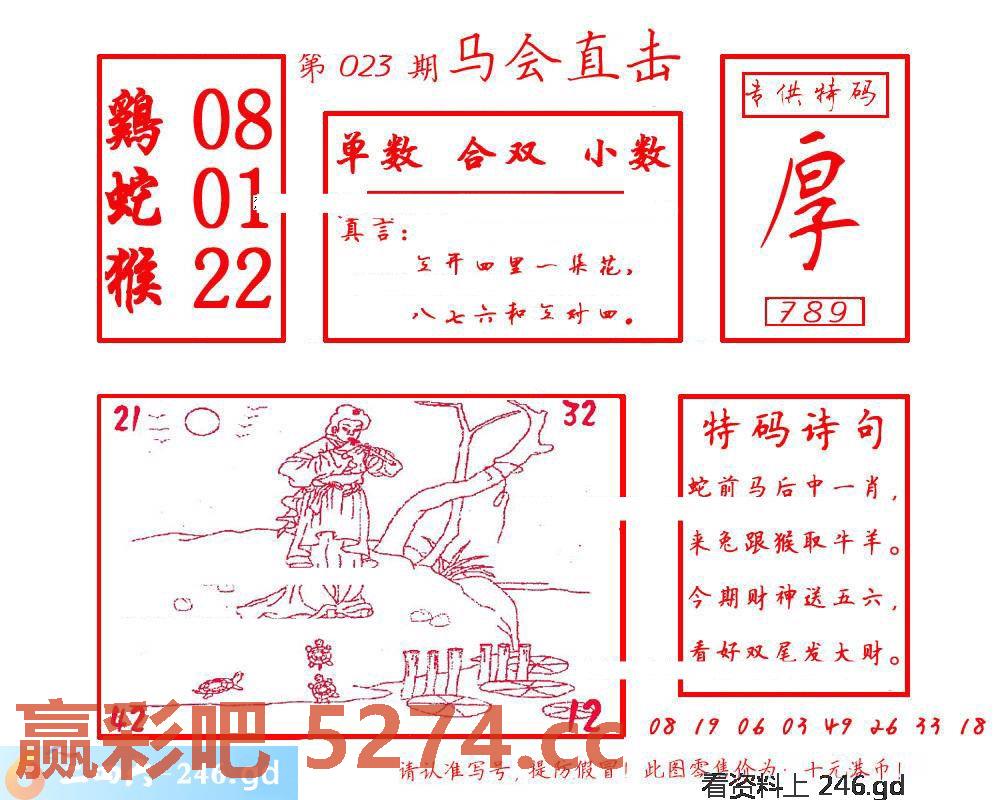 第 023 期 马会直击
鷄 08
蛇 01
猴 22
单数 合双 小数
真言:
三开四里一朵花,
八七六和三对四。
专供特码
厚
789
21
32
42
12
特码诗句
蛇前马后中一肖,
来兔跟猴取牛羊。
今期财神送五六,
看好双尾发大财。
08 19 06 03 49 26 33 18
赢彩吧 5274.cc
-246.gd
请认准写号,提防假冒! 此图零售价为·十元港币!
看资料上 246.gd